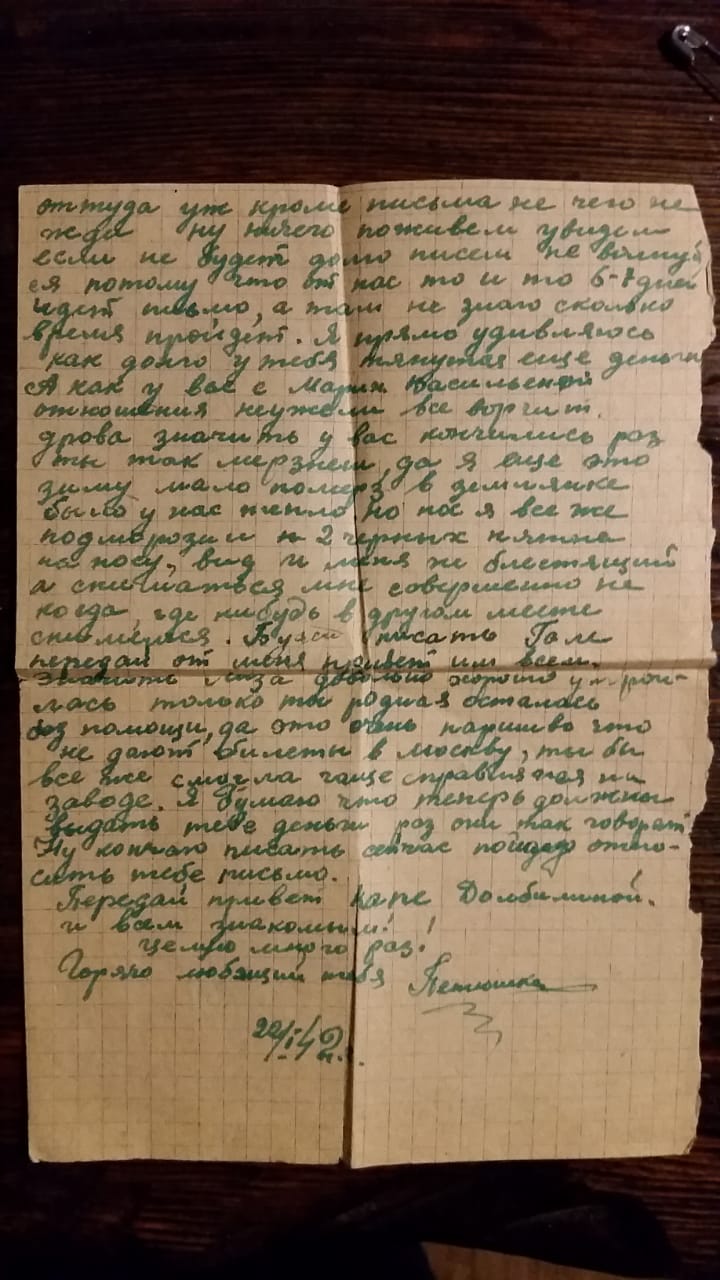 оттуда уж кроме письма не чего не
жди ну ничего поживем увидем
если не будет долго писем не волнуй
ся потому что от нас то и то 6-7 дней
идет письмо, а там не знаю сколько
время пройдет. Я прямо удивляюсь
как долго у тебя тянутся еще деньги
А как у вас с Марии Васильевной
отношения неужели все ворчит.
дрова значить у вас кончились раз
ты так мерзнеш, да я еще это
зиму мало померз в землянке
было у нас тепло но нос я все же
подморозил и 2 черных пятна
на носу, вид и меня не блестящий
а сниматься мне совершенно не
когда, где нибудь в другом месте
снимемся. Будеш писать Гале
передай от меня привет им всем.
Значить Лиза довольно хорошо устрои-
лась только ты родная осталась
без помощи, да это очень паршиво что
не дают билеты в Москву, ты бы
все же смогла чаще справляться на
заводе. Я думаю что теперь должны
выдать тебе деньги раз они так говорят
Ну кончаю писать сейчас пойду отно-
сить тебе письмо.
Передай привет Каре Долбилиной.
и всем знакомым!
целую много раз!
Горячо любящий тебя Петюшка
22/I 42 г.